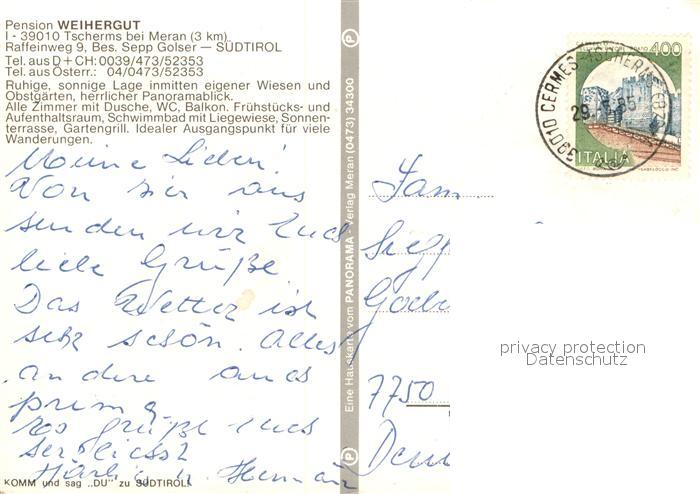 Pension WEIHERGUT
I - 39010 Tscherms bei Meran (3 km)
Raffeinweg 9, Bes. Sepp Golser — SÜDTIROL
Tel. aus D + CH: 0039/473/52353
Tel. aus Österr.: 04/0473/52353
Ruhige, sonnige Lage inmitten eigener Wiesen und
Obstgärten, herrlicher Panoramablick.
Alle Zimmer mit Dusche, WC, Balkon. Frühstücks- und
Aufenthaltsraum, Schwimmbad mit Liegewiese, Sonnen-
terrasse, Gartengrill. Idealer Ausgangspunkt für viele
Wanderungen.
Meine Lieben!
Von hier aus
senden wir Euch
liebe Grüße
Das Wetter ist
sehr schön. Alles
andere auch
prima
so grüße Euch
herzlichst
KOMM und sag „DU" zu SÜDTIROL!
Eine Hauskarte vom PANORAMA - Verlag Meran (0473) 34300
P
P
400
39010 CERMES
ITALIA
Fam.
7750
privacy protection
Datenschutz